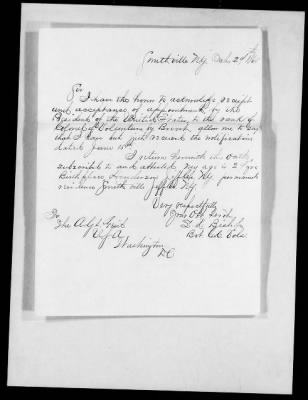 Smithville N.Y. Feb. 24th
Sir
I have the honor to acknowledge receipt
and acceptance of appointment by the
President of the United States, to the rank of
Colonel of Volunteers by Brevet, allow me to say
that I have but just received the notification
dated June 15th
I return herewith the oath,
subscribed to and attested. My age is 2
Birthplace Henderson Jeff Co N.Y. permanent
residence Smithville Jeff Co N.Y.
Very respectfully
Your Obt Servt
To
The Adjt. Genl.
U.S.A.
Washington
D.C.
Bvt. Col. Vols.